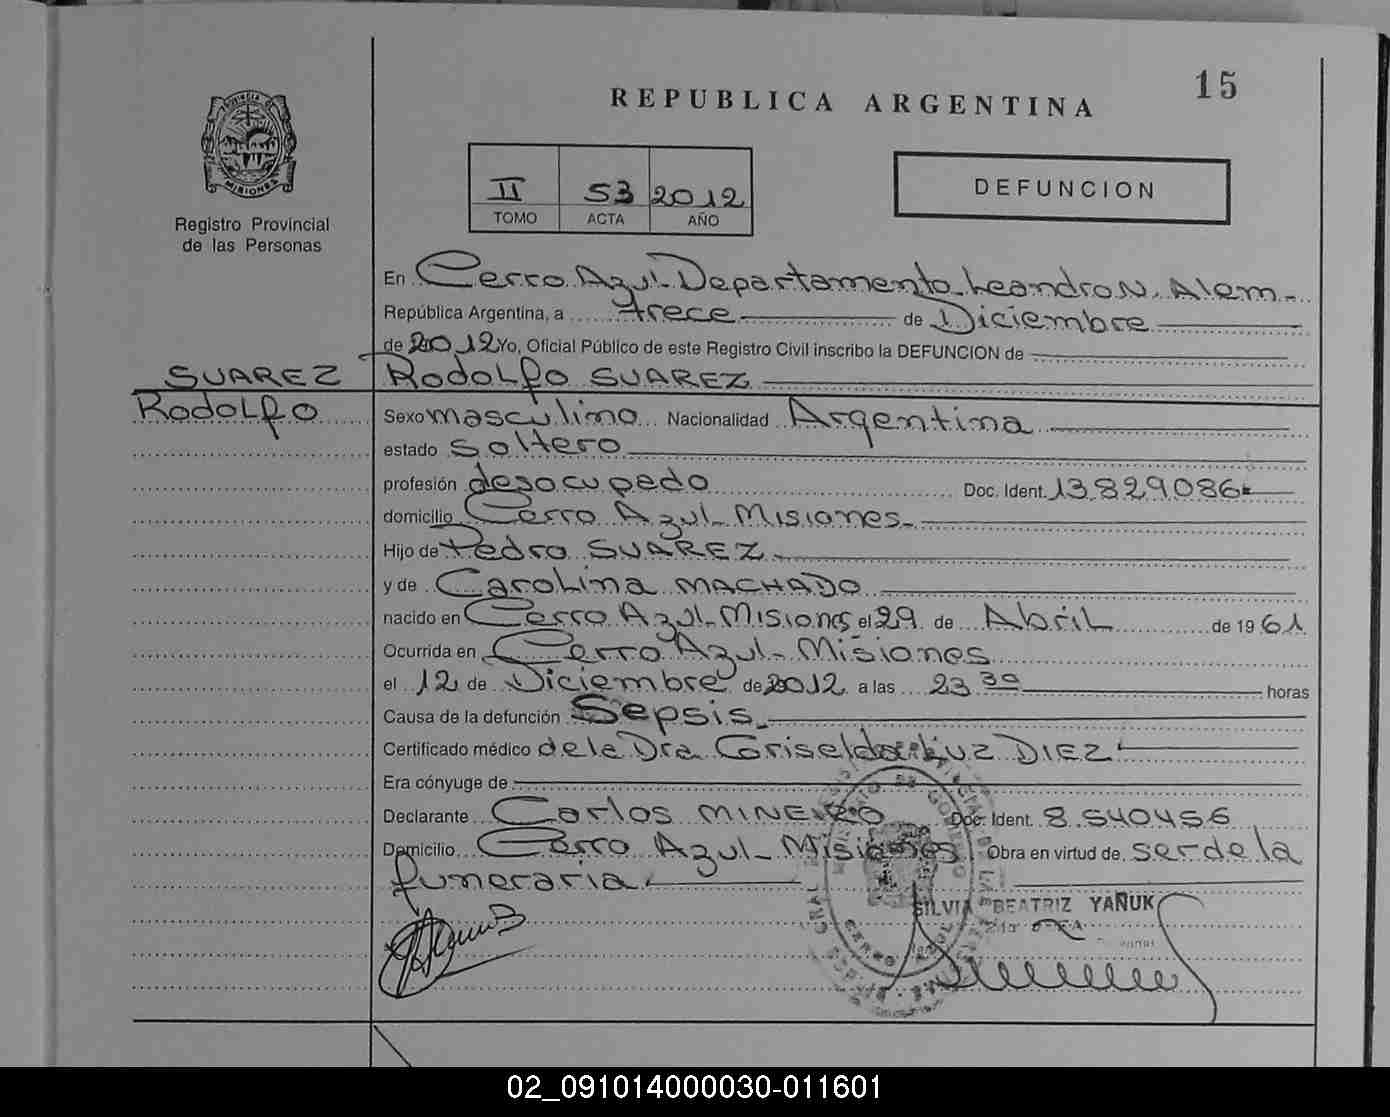 15
REPUBLICA ARGENTINA
PROVINCIA DE
MISIONES
Registro Provincial
de las Personas
II 53 2012
TOMO ACTA AÑO
DEFUNCION
En Cerro Azul Departamento Leandro N. Alem
República Argentina, a trece de Diciembre
de 2012 Yo, Oficial Público de este Registro Civil inscribo la DEFUNCION de
SUAREZ Rodolfo SUAREZ
Rodolfo Sexo masculino Nacionalidad Argentina
estado soltero
profesión desocupado Doc. Ident. 13829086
domicilio Cerro Azul - Misiones
Hijo de Pedro SUAREZ
y de Carolina MACHADO
nacido en Cerro Azul - Misiones el 29 de Abril de 1961
Ocurrida en Cerro Azul - Misiones
el 12 de Diciembre de 2012 a las 23 30 horas
Causa de la defunción Sepsis
Certificado médico de la Dra Griselda Luz DIEZ
Era cónyuge de
Declarante Carlos MINEIRO Doc. Ident. 8540456
Domicilio Cerro Azul - Misiones Obra en virtud de ser de la
funeraria
SILVIA BEATRIZ YAÑUK
CERRO AZUL
02_091014000030-011601